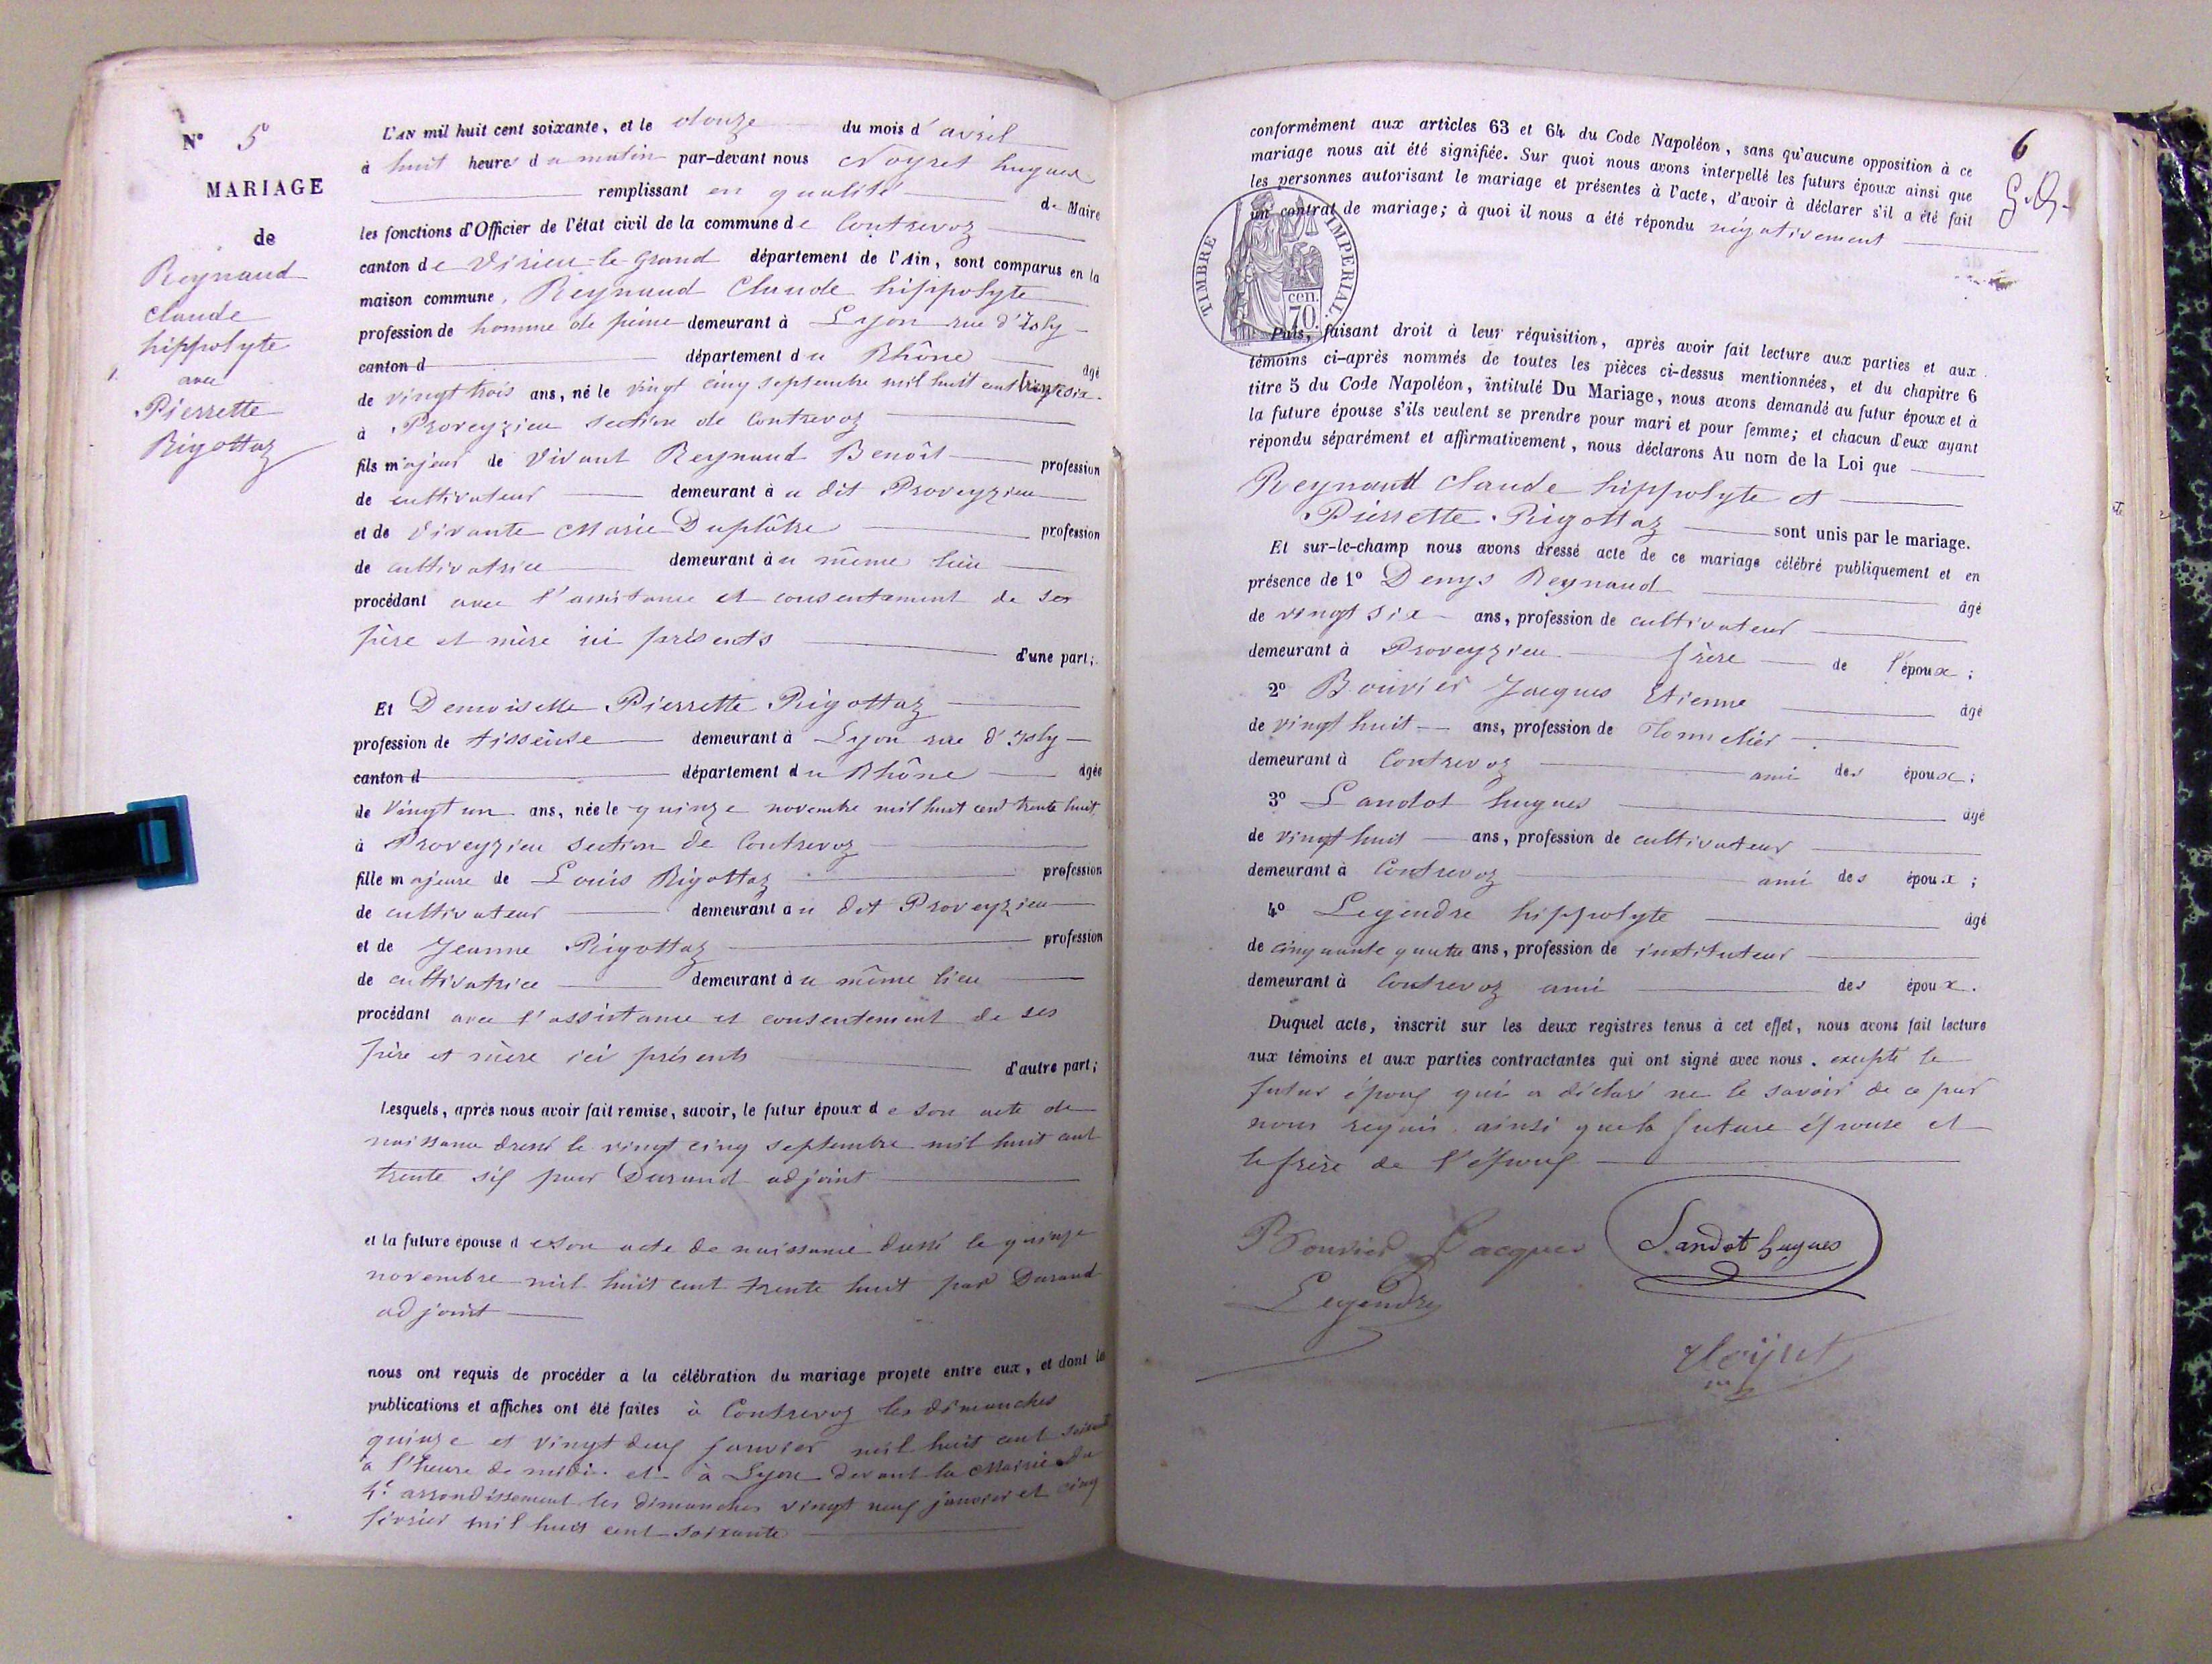 N° 5
MARIAGE
de
Reynaud
Claude
hippolyte
avec
Pierrette
Rigottaz
L'AN mil huit cent soixante, et le douze du mois d'avril
à huit heures du matin par-devant nous Noyret hugues
remplissant en qualité de Maire
les fonctions d'Officier de l'état civil de la commune de Contrevoz
canton de Virieu-le-Grand département de l'Ain, sont comparus en la
maison commune, Reynaud Claude hippolyte
profession de homme de peine demeurant à Lyon rue d'Isly
canton d département du Rhône âgé
de vingt trois ans, né le vingt cinq septembre mil huit cent trente six
à Proveyzieu section de Contrevoz
fils majeur de vivant Reynaud Benoît profession
de cultivateur demeurant au dit Proveyzieu
et de vivante Marie Duplâtre profession
de cultivatrice demeurant au même lieu
procédant avec l'assistance et consentement de ses
père et mère ici présents d'une part;
Et Demoiselle Pierrette Rigottaz
profession de tisseuse demeurant à Lyon rue d'Isly
canton d département du Rhône âgée
de vingt un ans, née le quinze novembre mil huit cent trente huit
à Proveyzieu section de Contrevoz
fille majeure de Louis Rigottaz profession
de cultivateur demeurant au dit Proveyzieu
et de Jeanne Rigottaz profession
de cultivatrice demeurant au même lieu
procédant avec l'assistance et consentement de ses
père et mère ici présents d'autre part;
Lesquels, après nous avoir fait remise, savoir, le futur époux de son acte de
naissance dressé le vingt cinq septembre mil huit cent
trente six par Durand adjoint
et la future épouse de son acte de naissance dressé le quinze
novembre mil huit cent trente huit par Durand
adjoint
nous ont requis de procéder à la célébration du mariage projeté entre eux, et dont les
publications et affiches ont été faites à Contrevoz les dimanches
quinze et vingt deux janvier mil huit cent soixante
à l'heure de midi et à Lyon devant la Mairie du
4e arrondissement les dimanches vingt neuf janvier et cinq
février mil huit cent soixante
6
conformément aux articles 63 et 64 du Code Napoléon, sans qu'aucune opposition à ce
mariage nous ait été signifiée. Sur quoi nous avons interpellé les futurs époux ainsi que
les personnes autorisant le mariage et présentes à l'acte, d'avoir à déclarer s'il a été fait
un contrat de mariage; à quoi il nous a été répondu négativement
TIMBRE IMPÉRIAL
cen.
70
Puis, faisant droit à leur réquisition, après avoir fait lecture aux parties et aux
témoins ci-après nommés de toutes les pièces ci-dessus mentionnées, et du chapitre 6
titre 5 du Code Napoléon, intitulé Du Mariage, nous avons demandé au futur époux et à
la future épouse s'ils veulent se prendre pour mari et pour femme; et chacun d'eux ayant
répondu séparément et affirmativement, nous déclarons Au nom de la Loi que
Reynaud Claude hippolyte et
Pierrette Rigottaz sont unis par le mariage.
Et sur-le-champ nous avons dressé acte de ce mariage célébré publiquement et en
présence de 1° Denys Reynaud âgé
de vingt six ans, profession de cultivateur
demeurant à Proveyzieu frère de l'époux;
2° Bouvier Jacques Etienne âgé
de vingt huit ans, profession de Tonnelier
demeurant à Contrevoz ami des époux;
3° Landot hugues âgé
de vingt huit ans, profession de cultivateur
demeurant à Contrevoz ami des époux;
4° Legendre hippolyte âgé
de cinquante quatre ans, profession de instituteur
demeurant à Contrevoz ami des époux.
Duquel acte, inscrit sur les deux registres tenus à cet effet, nous avons fait lecture
aux témoins et aux parties contractantes qui ont signé avec nous. excepté le
futur époux qui a déclaré ne le savoir de ce par
nous requis, ainsi que la future épouse et
le frère de l'époux
Bouvier Jacques Landot hugues
Legendre
Noyret